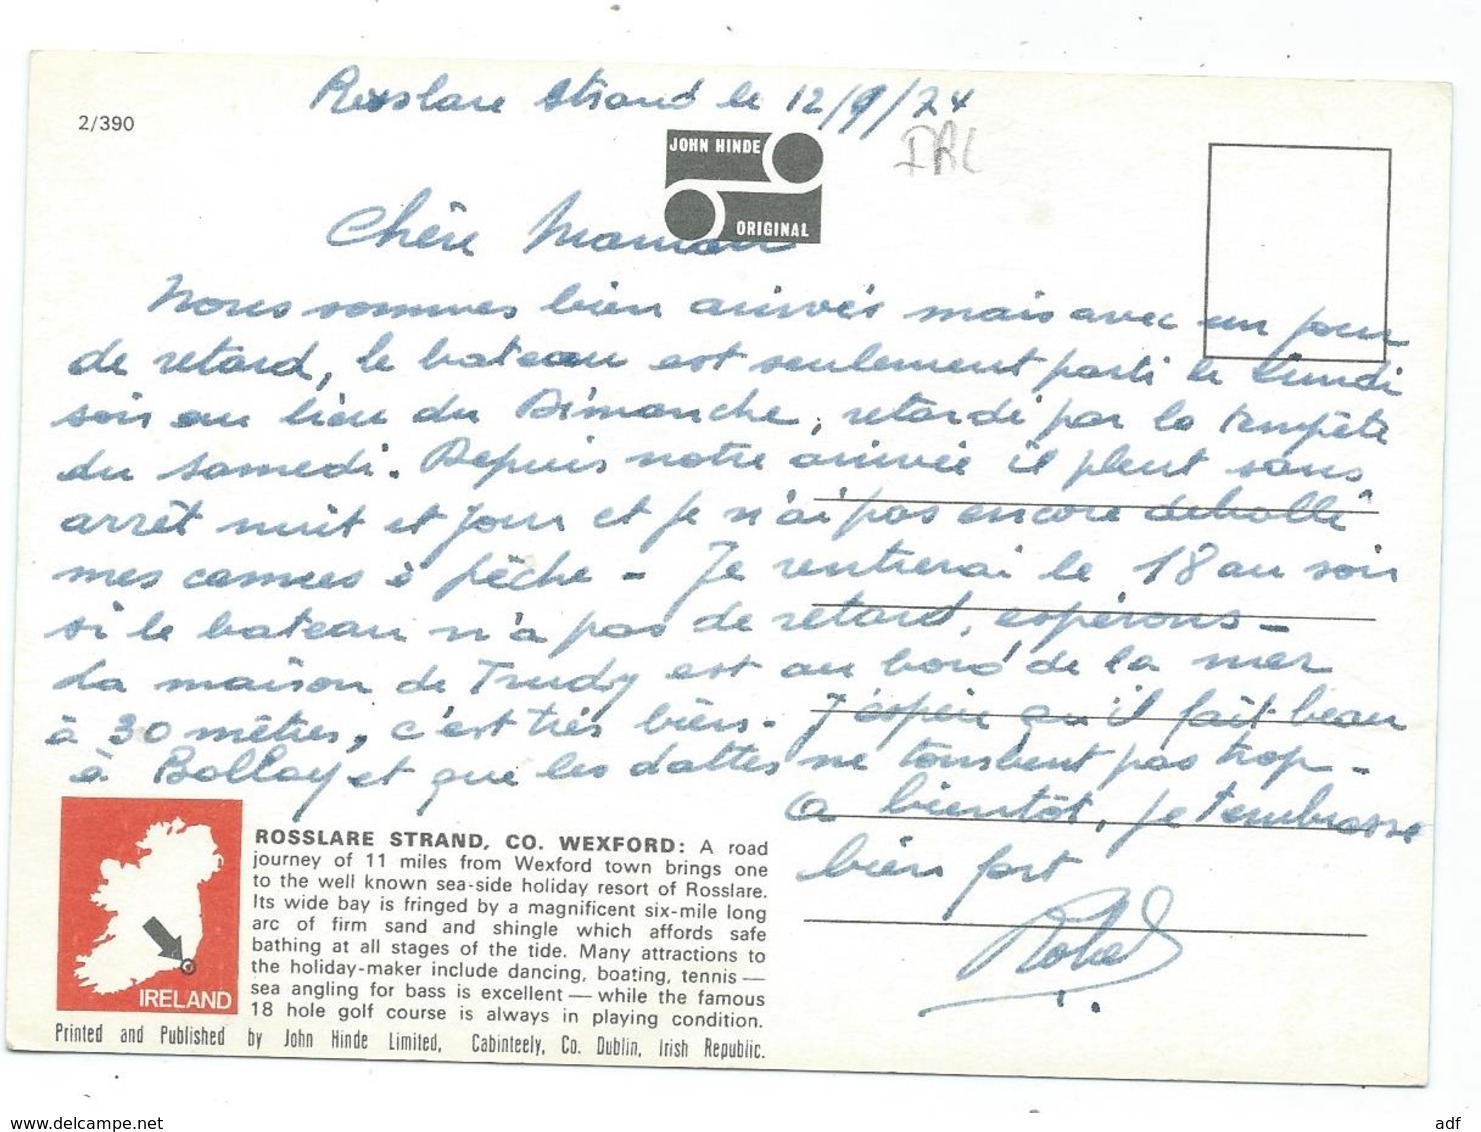 Rosslare Strand le 12/9/74
2/390
IRL
JOHN HINDE
ORIGINAL
Chère Maman
Nous sommes bien arrivés mais avec un jour
de retard, le bateau est seulement parti le Lundi
soir au lieu du Dimanche, retardé par la tempête
du samedi. Depuis notre arrivée il pleut sans
arrêt nuit et jour et je n'ai pas encore déballé
mes cannes à pêche - Je rentrerai le 18 au soir
si le bateau n'a pas de retard, espérons -
La maison de Trudy est au bord de la mer
à 30 mètres, c'est très bien. J'espère qu'il fait beau
à Bollay et que les dattes ne tombent pas trop -
a bientôt, je t'embrasse
bien fort
IRELAND
ROSSLARE STRAND, CO. WEXFORD: A road
journey of 11 miles from Wexford town brings one
to the well known sea-side holiday resort of Rosslare.
Its wide bay is fringed by a magnificent six-mile long
arc of firm sand and shingle which affords safe
bathing at all stages of the tide. Many attractions to
the holiday-maker include dancing, boating, tennis —
sea angling for bass is excellent — while the famous
18 hole golf course is always in playing condition.
Printed and Published by John Hinde Limited, Cabinteely, Co. Dublin, Irish Republic.
www.delcampe.net
adf